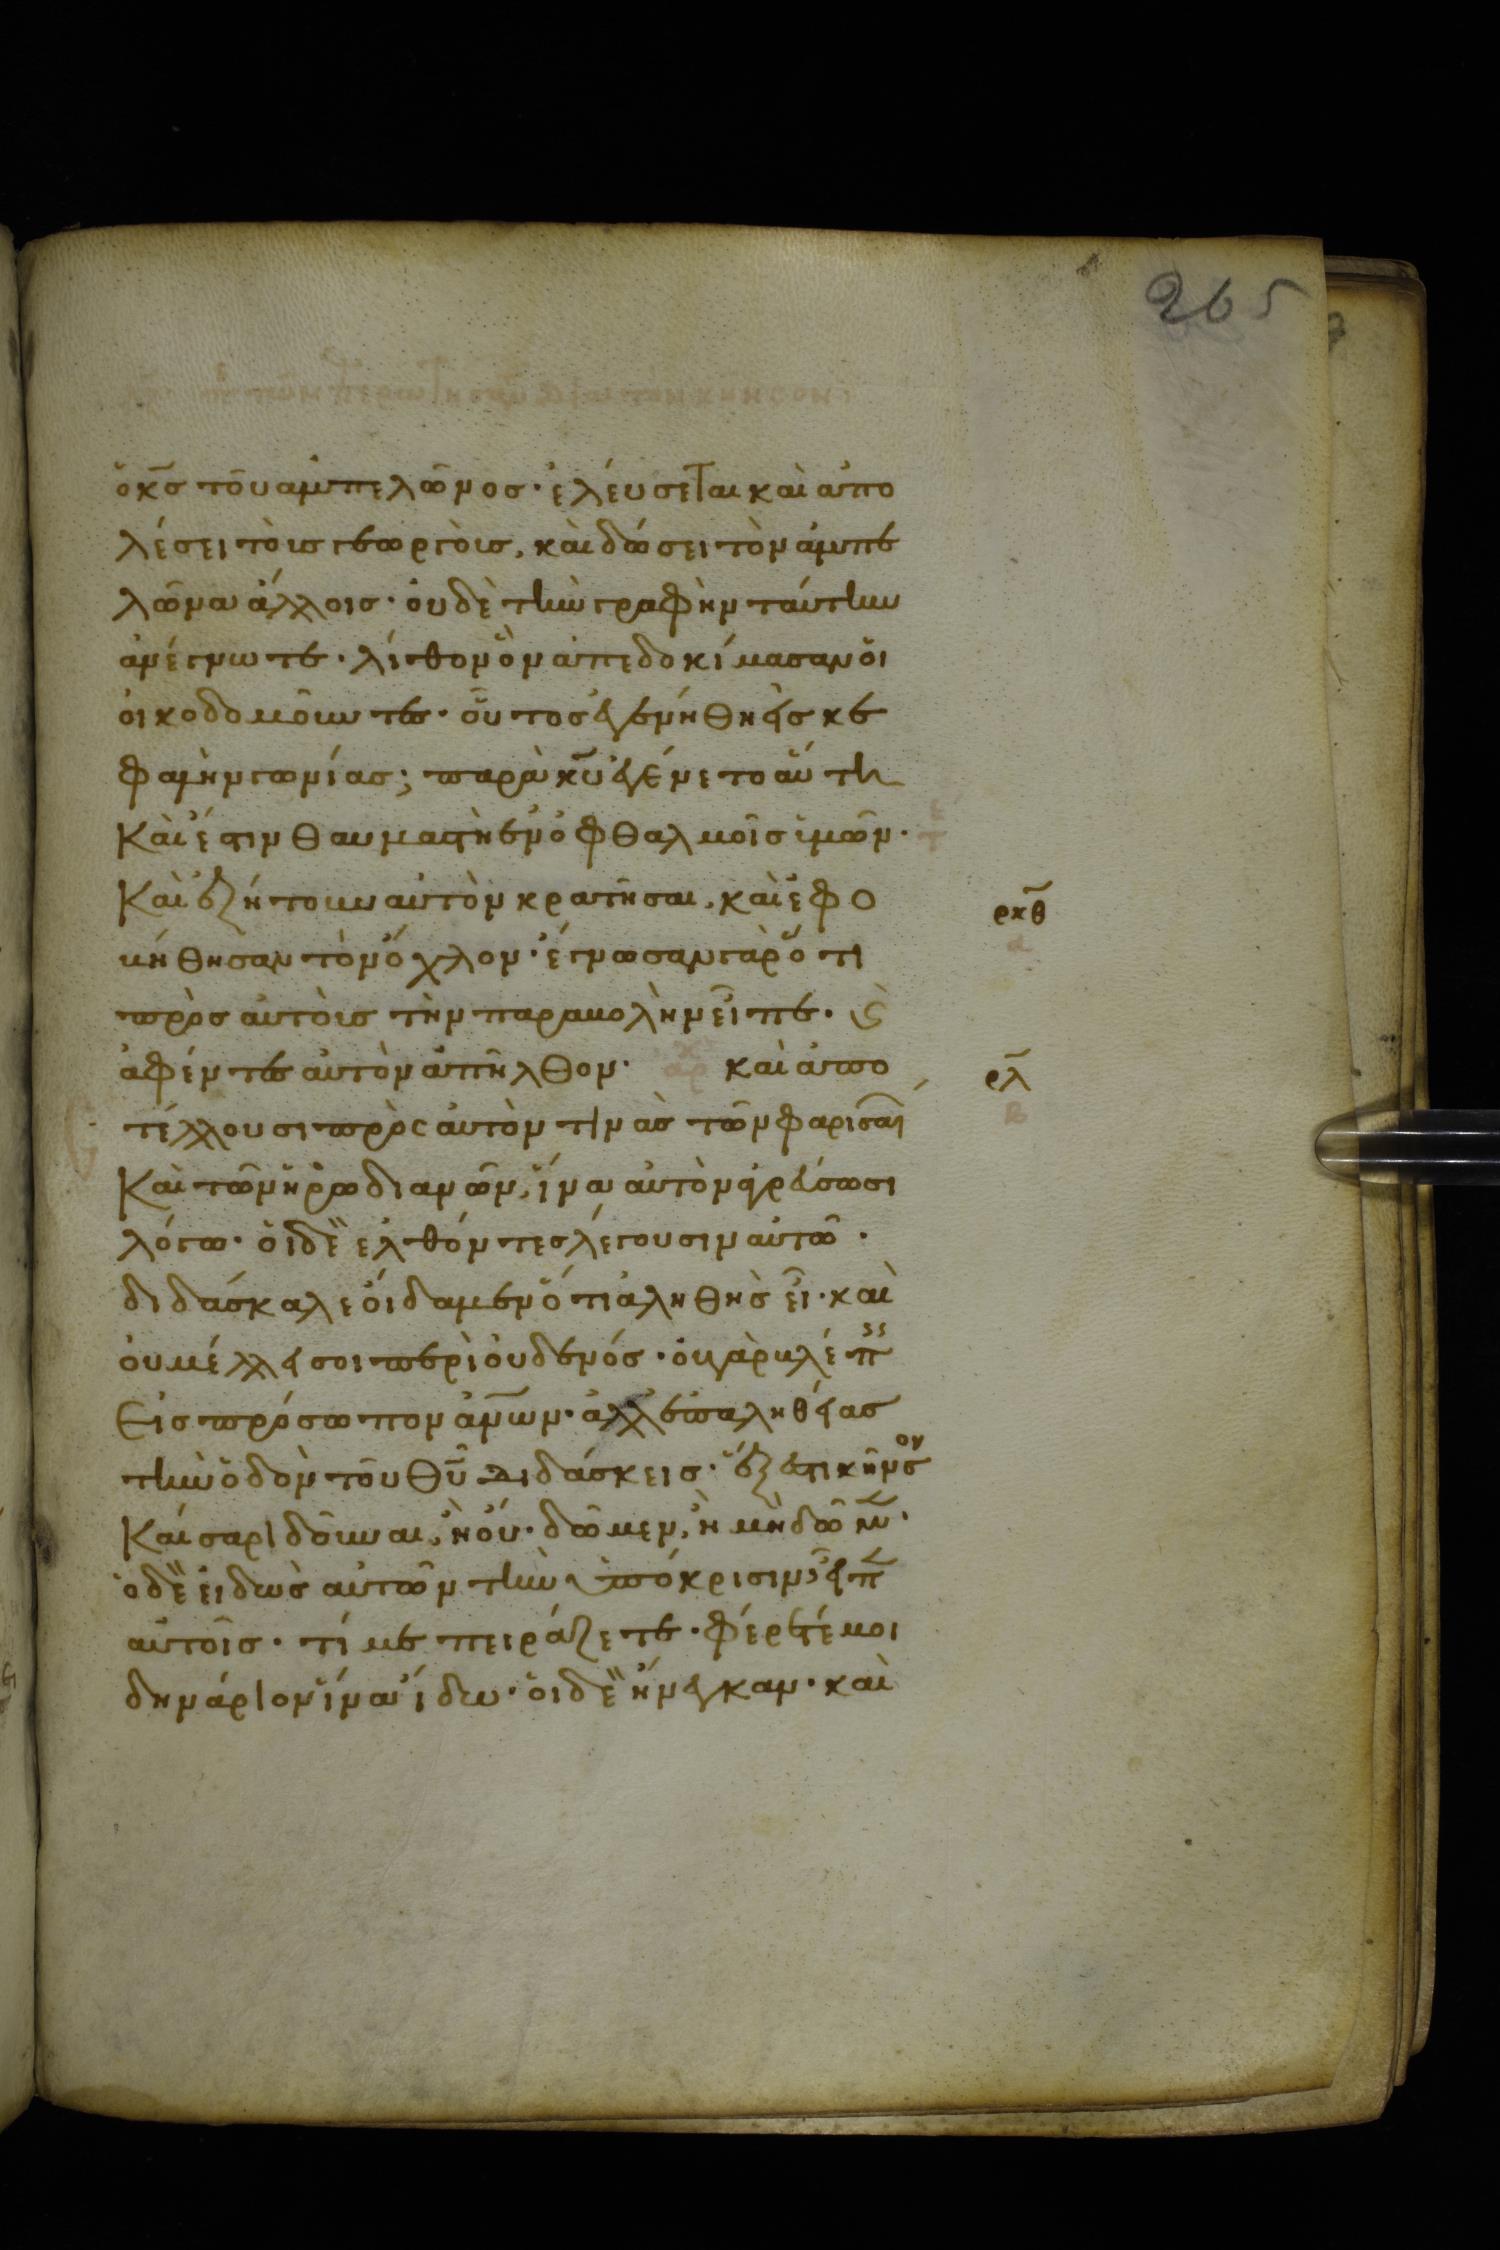 265
ὁ κ̅ς̅ τοῦ ἀμπελῶνος· ἐλεύσεται καὶ ἀπο
λέσει τοὺς γεωργοὺς, καὶ δώσει τὸν ἀμπε
λῶνα ἄλλοις· οὐδὲ τὴν γραφὴν ταύτην
ἀνέγνωτε· λίθον ὃν ἀπεδοκίμασαν οἱ
οἰκοδομοῦντες· οὗτος ἐγενήθη εἰς κε
φαλὴν γωνίας; παρὰ κ̅υ̅ ἐγένετο αὕτη
καὶ ἔστιν θαυμαστὴ ἐν ὀφθαλμοῖς ἡμῶν·
Καὶ ἐζήτουν αὐτὸν κρατῆσαι, καὶ ἐφο
ρκθ
α
βήθησαν τὸν ὄχλον· ἔγνωσαν γὰρ ὅτι
πρὸς αὐτοὺς τὴν παραβολὴν εἶπε· ϛ̀
ἀφέντες αὐτὸν ἀπῆλθον· αρχ καὶ ἀπο
ρλ
β
τέλλουσι πρὸς αὐτὸν τινὰς τῶν φαρισαί
καὶ τῶν ἡρωδιανῶν, ἵνα αὐτὸν ἀγρεύσωσι
λόγω· οἱ δὲ ἐλθόντες λέγουσιν αὐτῶ·
διδάσκαλε οἴδαμεν ὅτι ἀληθὴς εἶ· καὶ
οὐ μέλλει σοι περὶ οὐδενός· οὐ γὰρ βλέπ
εἰς πρόσωπον ἀν̅ω̅ν· ἀλλ' ἐπ' ἀληθείας
τὴν ὁδὸν τοῦ θ̅υ̅ διδάσκεις· ἔξεστι κῆνσον
Καίσαρι δοῦναι, ἢ οὔ· δῶμεν, ἢ μὴ δῶμν·
ὁ δὲ εἰδὼς αὐτῶν τὴν ὑπόκρισιν, εἶπ
αὐτοῖς· τί με πειράζετε· φέρετέ μοι
δηνάριον ἵνα ἴδω· οἱ δὲ ἤνεγκαν· καὶ